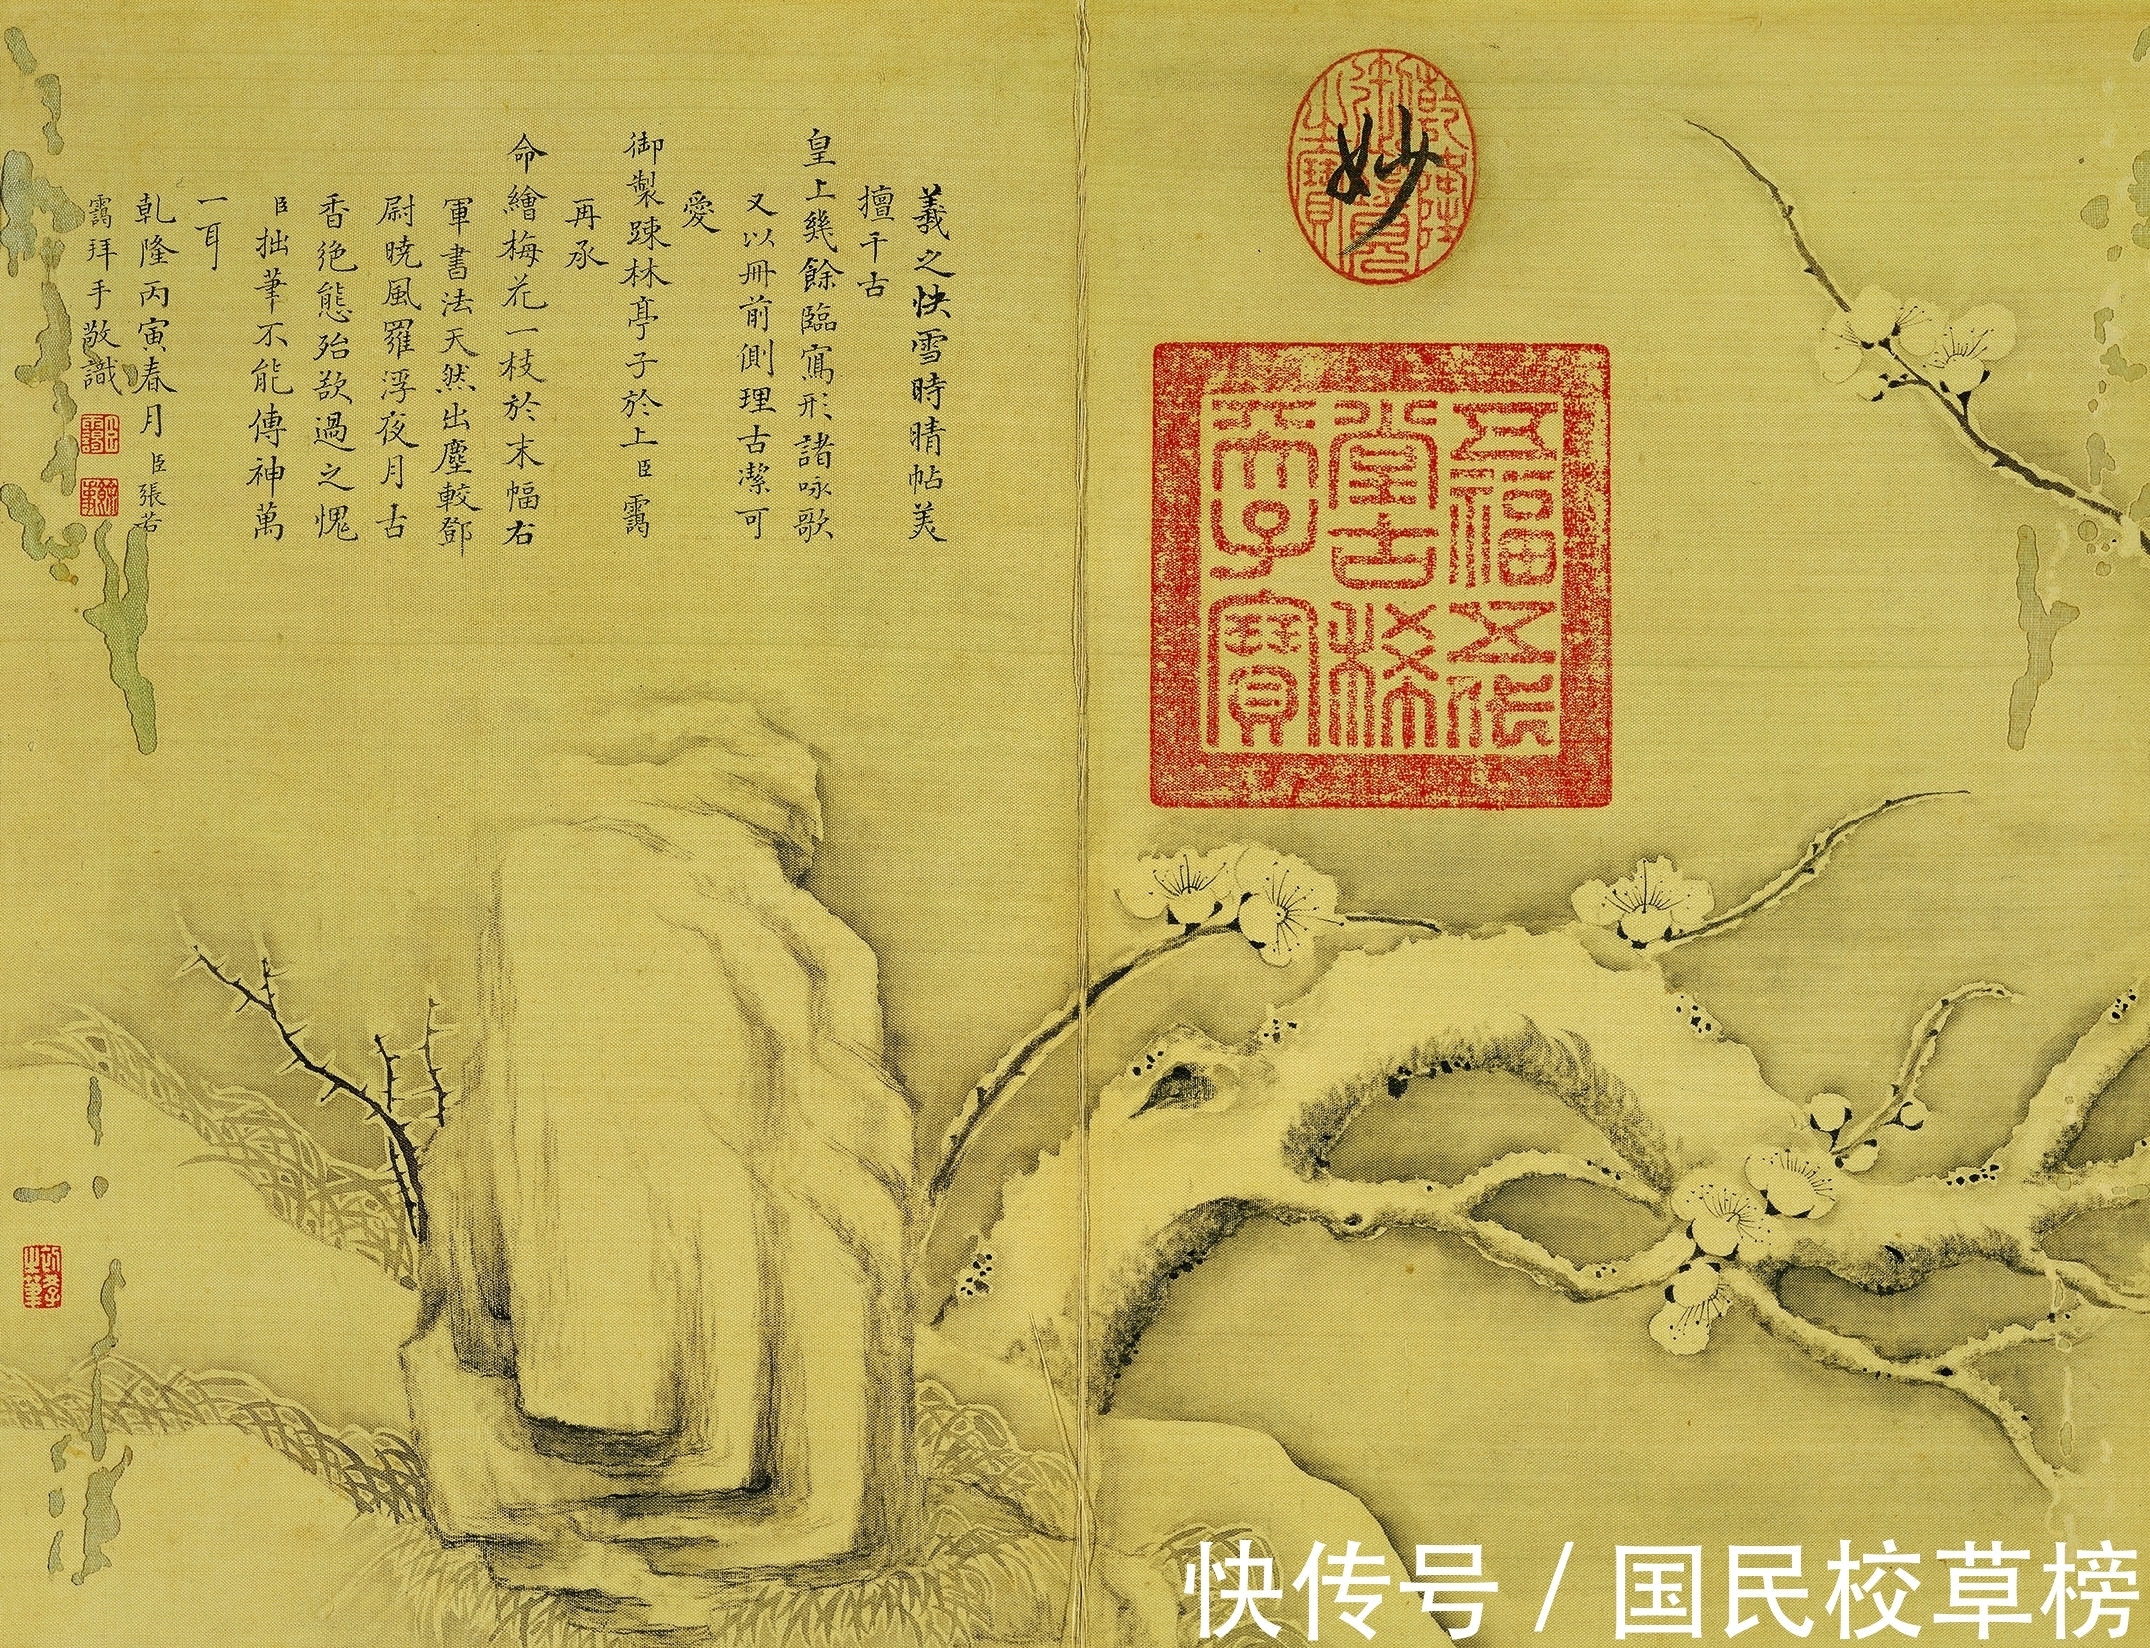 羲之快雪時晴帖美
擅千古
皇上幾餘臨寫形諸咏歌
又以冊前側理古潔可
愛
御製疎林亭子於上臣靄
再承
命繪梅花一枝於末幅右
軍書法天然出塵較鄧
尉曉風羅浮夜月古
香絕態殆欲過之愧
臣拙筆不能傳神萬
一耳
乾隆丙寅春月臣張若
靄拜手敬識
妙
乾隆御覽之寶
五福五代
堂古稀
天子寶
快传号/国民校草榜